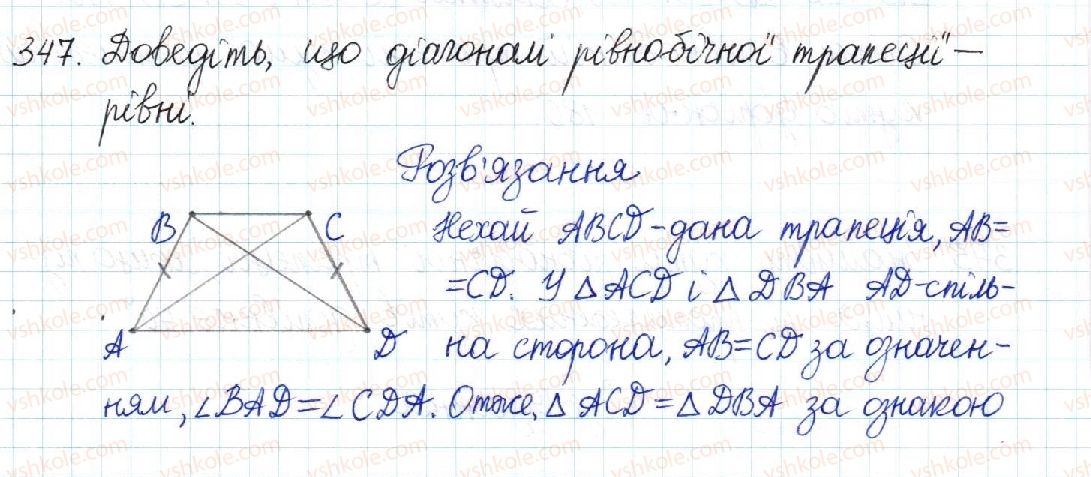 347. Доведіть, що діагоналі рівнобічної трапеції —
рівні.
Розв'язання
B C
A D
Нехай ABCD - дана трапеція, AB=
=CD. У △ ACD і △ DBA AD-спіль-
на сторона, AB=CD за означен-
ням, ∠BAD=∠CDA. Отже, △ ACD=△ DBA за ознакою
vshkole.com